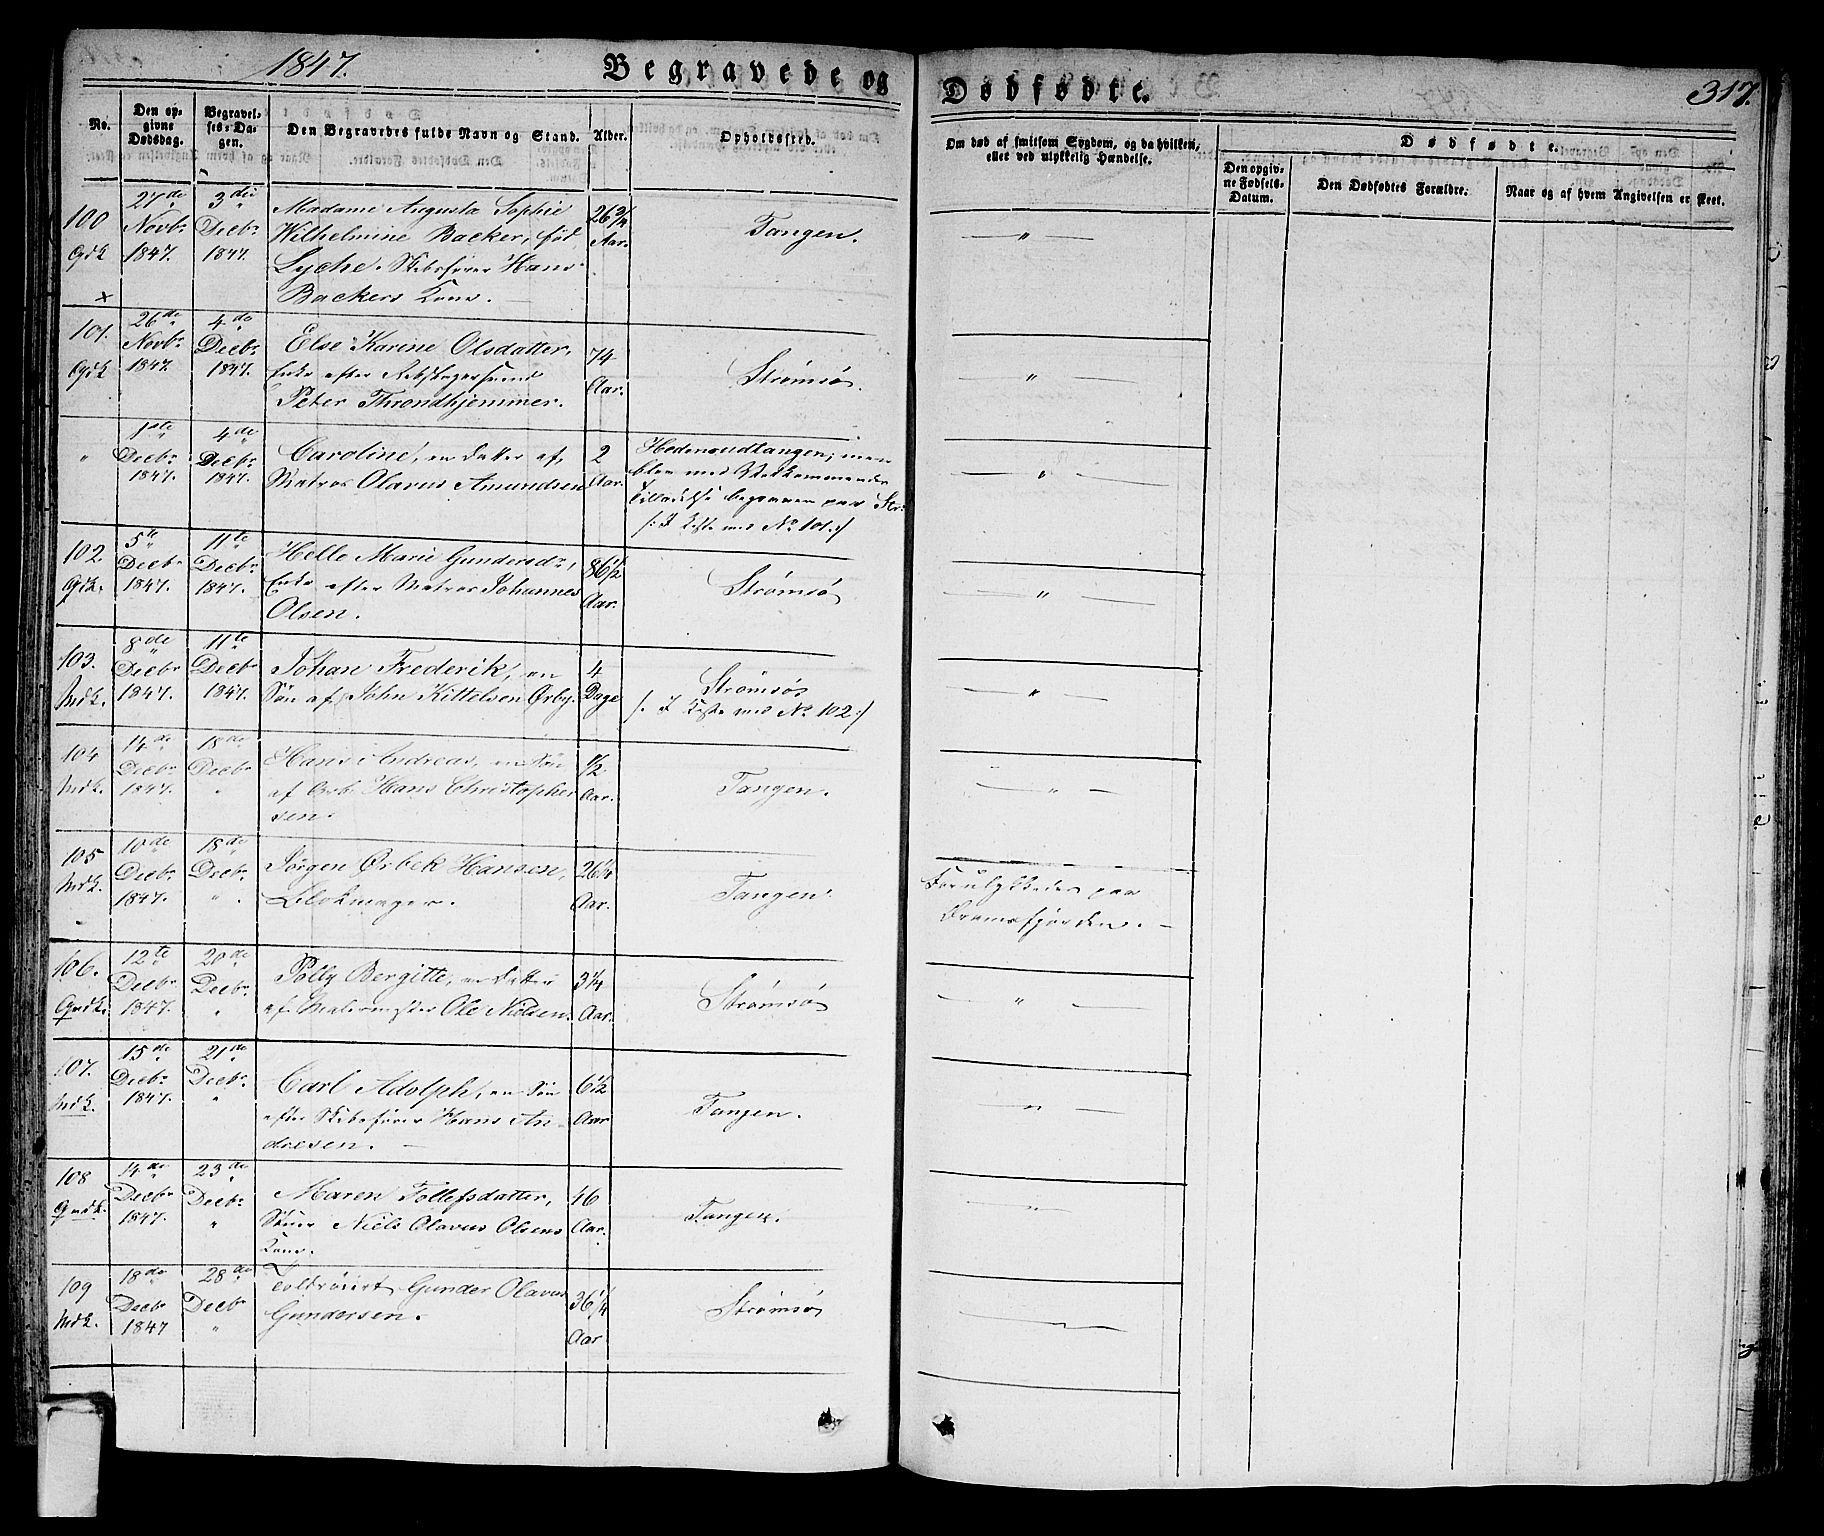 1847.
Begravede og
Dødfødte.
317.
No.
Den op-
givne
Dødsdag.
Begravel-
ses-Da-
gen.
Den Begravedes fulde Navn og Stand.
Alder.
Opholdssted.
Om død af smitsom Sygdom, og da hvilken,
eller ved ulykkelig Hændelse.
Dødfødte.
Den opgiv-
ne Fødsels-
Datum.
Den Dødfødtes Forældre.
Naar og af hvem Angivelsen er skeet.
100
Qdk
27de
Novbr
1847.
3die
Decbr
1847.
Madame Augusta Sophie
Wilhelmine Backer, fød
Lyche. Skibsfører Hans
Backers Kone.
26
Aar.
Tangen.
"
101.
Qdk
26de
Novbr
1847.
4de
Decbr
1847.
Else Karine Olsdatter,
Enke efter
Peter Throndhjemmer.
74
Aar.
Strømsø.
"
"
1ste
Decbr
1847.
4de
Decbr
1847.
Caroline, en Datter af
Matros Olavus Amundsen
2
Aar.
Hedensudtangen, men
blev med Vedkommendes
Tilladelse begraven paa Str.
/: I Kiste med No 101 :/
"
102.
Qdk.
5te
Decbr
1847.
11te
Decbr
1847.
Helle Marie Gundersdr,
Enke efter Matros Johannes
Olsen.
86 1/2
Aar.
Strømsø
"
103.
Mdk.
8de
Decbr
1847.
11te
Decbr
1847.
Johan Frederik, en
Søn af John Kittelsen Ørby.
4
Dage
Strømsø
/: I Kiste med No 102 :/
"
104
Mdk.
14de
Decbr
1847.
18de
Decbr
"
Hans Andreas, en Søn
af Arb. Hans Christopher
sen.
1/2
Aar.
Tangen.
"
105
Mdk.
10de
Decbr
1847.
18de
Decbr
".
Jørgen Ørbek Hansen,
Blokmager.
26 1/4
Aar.
Tangen.
Forulykkedes paa
Dramsfjorden.
106.
Qndk.
12te
Decbr
1847.
20de
Decbr
"
Polly Bergitte, en Datter
af Malermester Ole Nielsen.
3 1/4
Aar.
Strømsø
"
107.
Mdk.
15de
Decbr
1847.
21de
Decbr
"
Carl Adolph, en Søn
efter Skibsfører Hans An-
dresen.
6 1/2
Aar
Tangen.
"
108
Qndk.
14de
Decbr
1847.
23de
Decbr
"
Maren Tollefsdatter,
Niels Olavus Olsens
Kone.
46
Aar.
Tangen.
"
109
Mdk.
18de
Decbr
1847
28de
Decbr
"
Toldroiert Gunder Olavus
Gundersen.
36 1/4
Aar.
Strømsø